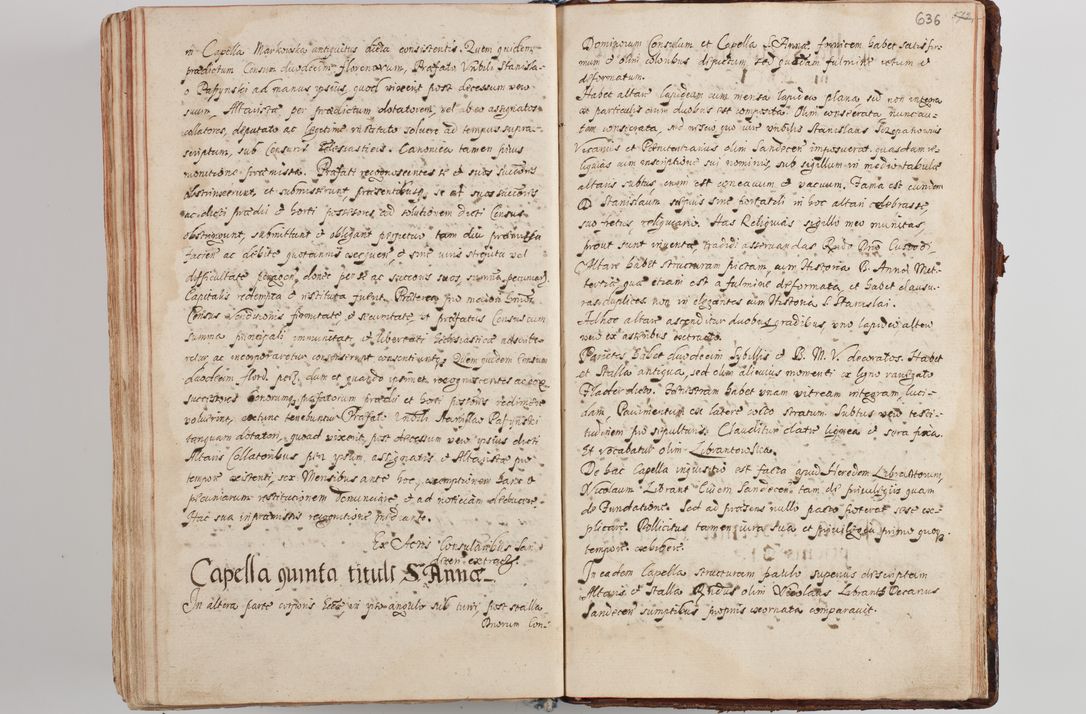 in Capella Markowska antiquitus dicta consistentis. Quem quidem
prædictum Censum duodecim florenorum, Præfato Nobili Stanisla-
o Papynski ad manus ipsius, quoad vixerit post decessum vero
suum, Altaristæ per prædictum dotatorem vel ab eo assignatos
collatores, deputato ac legitime instituto solvere ad tempus supra-
scriptum, sub Censuris Ecclesiasticis. Canonica tamen prius
monitione præmissa. Præfati recognoscentes se et suos succoris
obstrinxerunt, et submiserunt, præsentibusq se et suos succoris
ac dicti prædii et horti possessores, ad solutionem dicti Census
obstringunt, submittunt et obligant perpetuo tam diu præmissa
facien ac debite quotannis exequen, et sine
difficultate donec per se ac succores suos, summa pecuniarum
Capitalis redempta et restituta fuerit. Præterea pro
Census venditionis firmitate, et securitate, et præfatus Census cum
summa principali immunitati, et libertati Ecclesiasticæ adscribe-
retur ac incorporaretur consenserunt consentiuntq. Quem quidem Censum
duodecim flor. dum et quando ipsimet recognoscentes ac eorum
successores bonorum præfatorum prædii et horti possores redimere
voluerint, extunc tenebuntur Præfato Nobili Stanislao Papynski
tanquam dotatori, quoad vixerit, post decessum vero ipsius dicti
Altaris Collatoribus per ipsum assignatis et Altaristæ pro
tempore existenti, sex Mensibus ante hoc, exemptionem hanc et
pecuniarum restitutionem denunciare et ad noticiam deducere.
Hac sua in præmissis recognitione mediante.
Ex Actis Consularibus San
decen extract.
Capella quinta tituli S. Annæ
In altera parte corporis Ecclæ in ipso angulo sub turri, post stalla
Dnorum Con-
636
Dominorum Consulum et Capella S. Annæ, fornicem habet satis fir-
mum et olim coloribus distinctum sed quodam fulmine vetum et
deformatum.
Habet altare lapideum cum mensa lapidea plana, sed non integra
ex particulis enim duobus est composita. Olim consecrata nunc au-
tem consecrata, sed nescio quo iure nobilis Stanislaus Szczepanowic
Vicarius et Pœnitentiarius olim Sandecen imposuerat quasdam re-
liquias cum inscriptione sui nominis, sub sigillum in medio tabulæ
altaris subtus, enim est concavum et vacuum. Fama est eundem
D. Stanislaum sæpius sine portatili in hoc altari celebrasse,
suo retus, reliquiario. Has Reliquias sigillo meo munitas,
prout sunt inventæ tradidi asservandas Rndo Dno Custodi,
Altare habet structuram pictam, cum Historia B. Annæ Met-
tertia, quæ etiam est a fulmine deformata, et habet clausu-
ras duplices non inelegantes cum Historia S. Stanislai.
Ad hoc altare ascenditur duobus gradibus, uno lapideo altero
vero ex asseribus exstructo.
Parietes habet duodecim Sybillis et B. M. V. decoratos. Habet
et Stalla antiqua, sed olim alicuius momenti ex ligno
Flader dicto. Fenestram habet unam vitream integram, luci-
dam. Pavimentum ex latere cocto stratum. Subtus vero testi-
tudinem pro sepulturis. Clauditur clatre lignea et sera fixa.
Et vocabatur olim Librantowska.
De hac Capella inquisitio est facta apud Heredem Librantorum,
Nicolaum Librant Civem Sandecen, tam de privilegiis quam
de Fundatione. Sed ad præsens nullo pacto poterat sese ex-
plicare. Pollicitus tamen iura sua et privilegia primo quoq
tempore exhibere.
In eadem Capella structuram paulo superius descriptam
Altaris et Stalla Rndus olim Nicolaus Librant Decanus
Sandecen sumptibus propriis exornata comparavit.